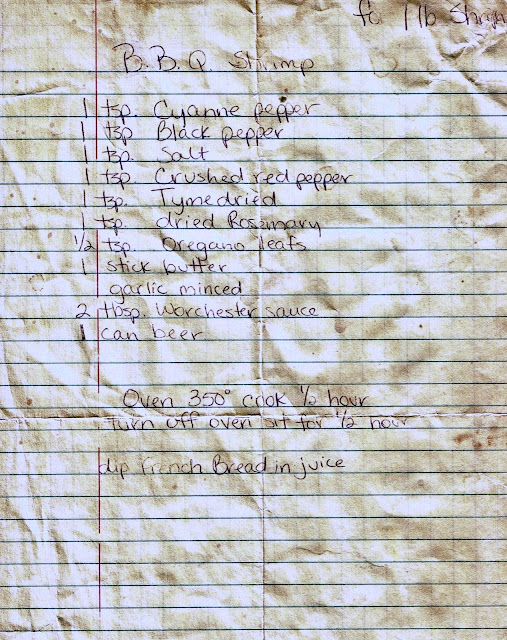 for 1 lb Shrimp
B.B.Q. Shrimp
1 tsp. Cyanne pepper
1 tsp Black pepper
1 tsp. Salt
1 tsp. Crushed red pepper
1 tsp. Tyme dried
1 tsp. dried Rosemary
1/2 tsp. Oregano leafs
1 stick butter
garlic minced
2 tbsp. Worchester sauce
1 can beer
Oven 350° cook 1/2 hour
turn off oven sit for 1/2 hour
dip French Bread in juice